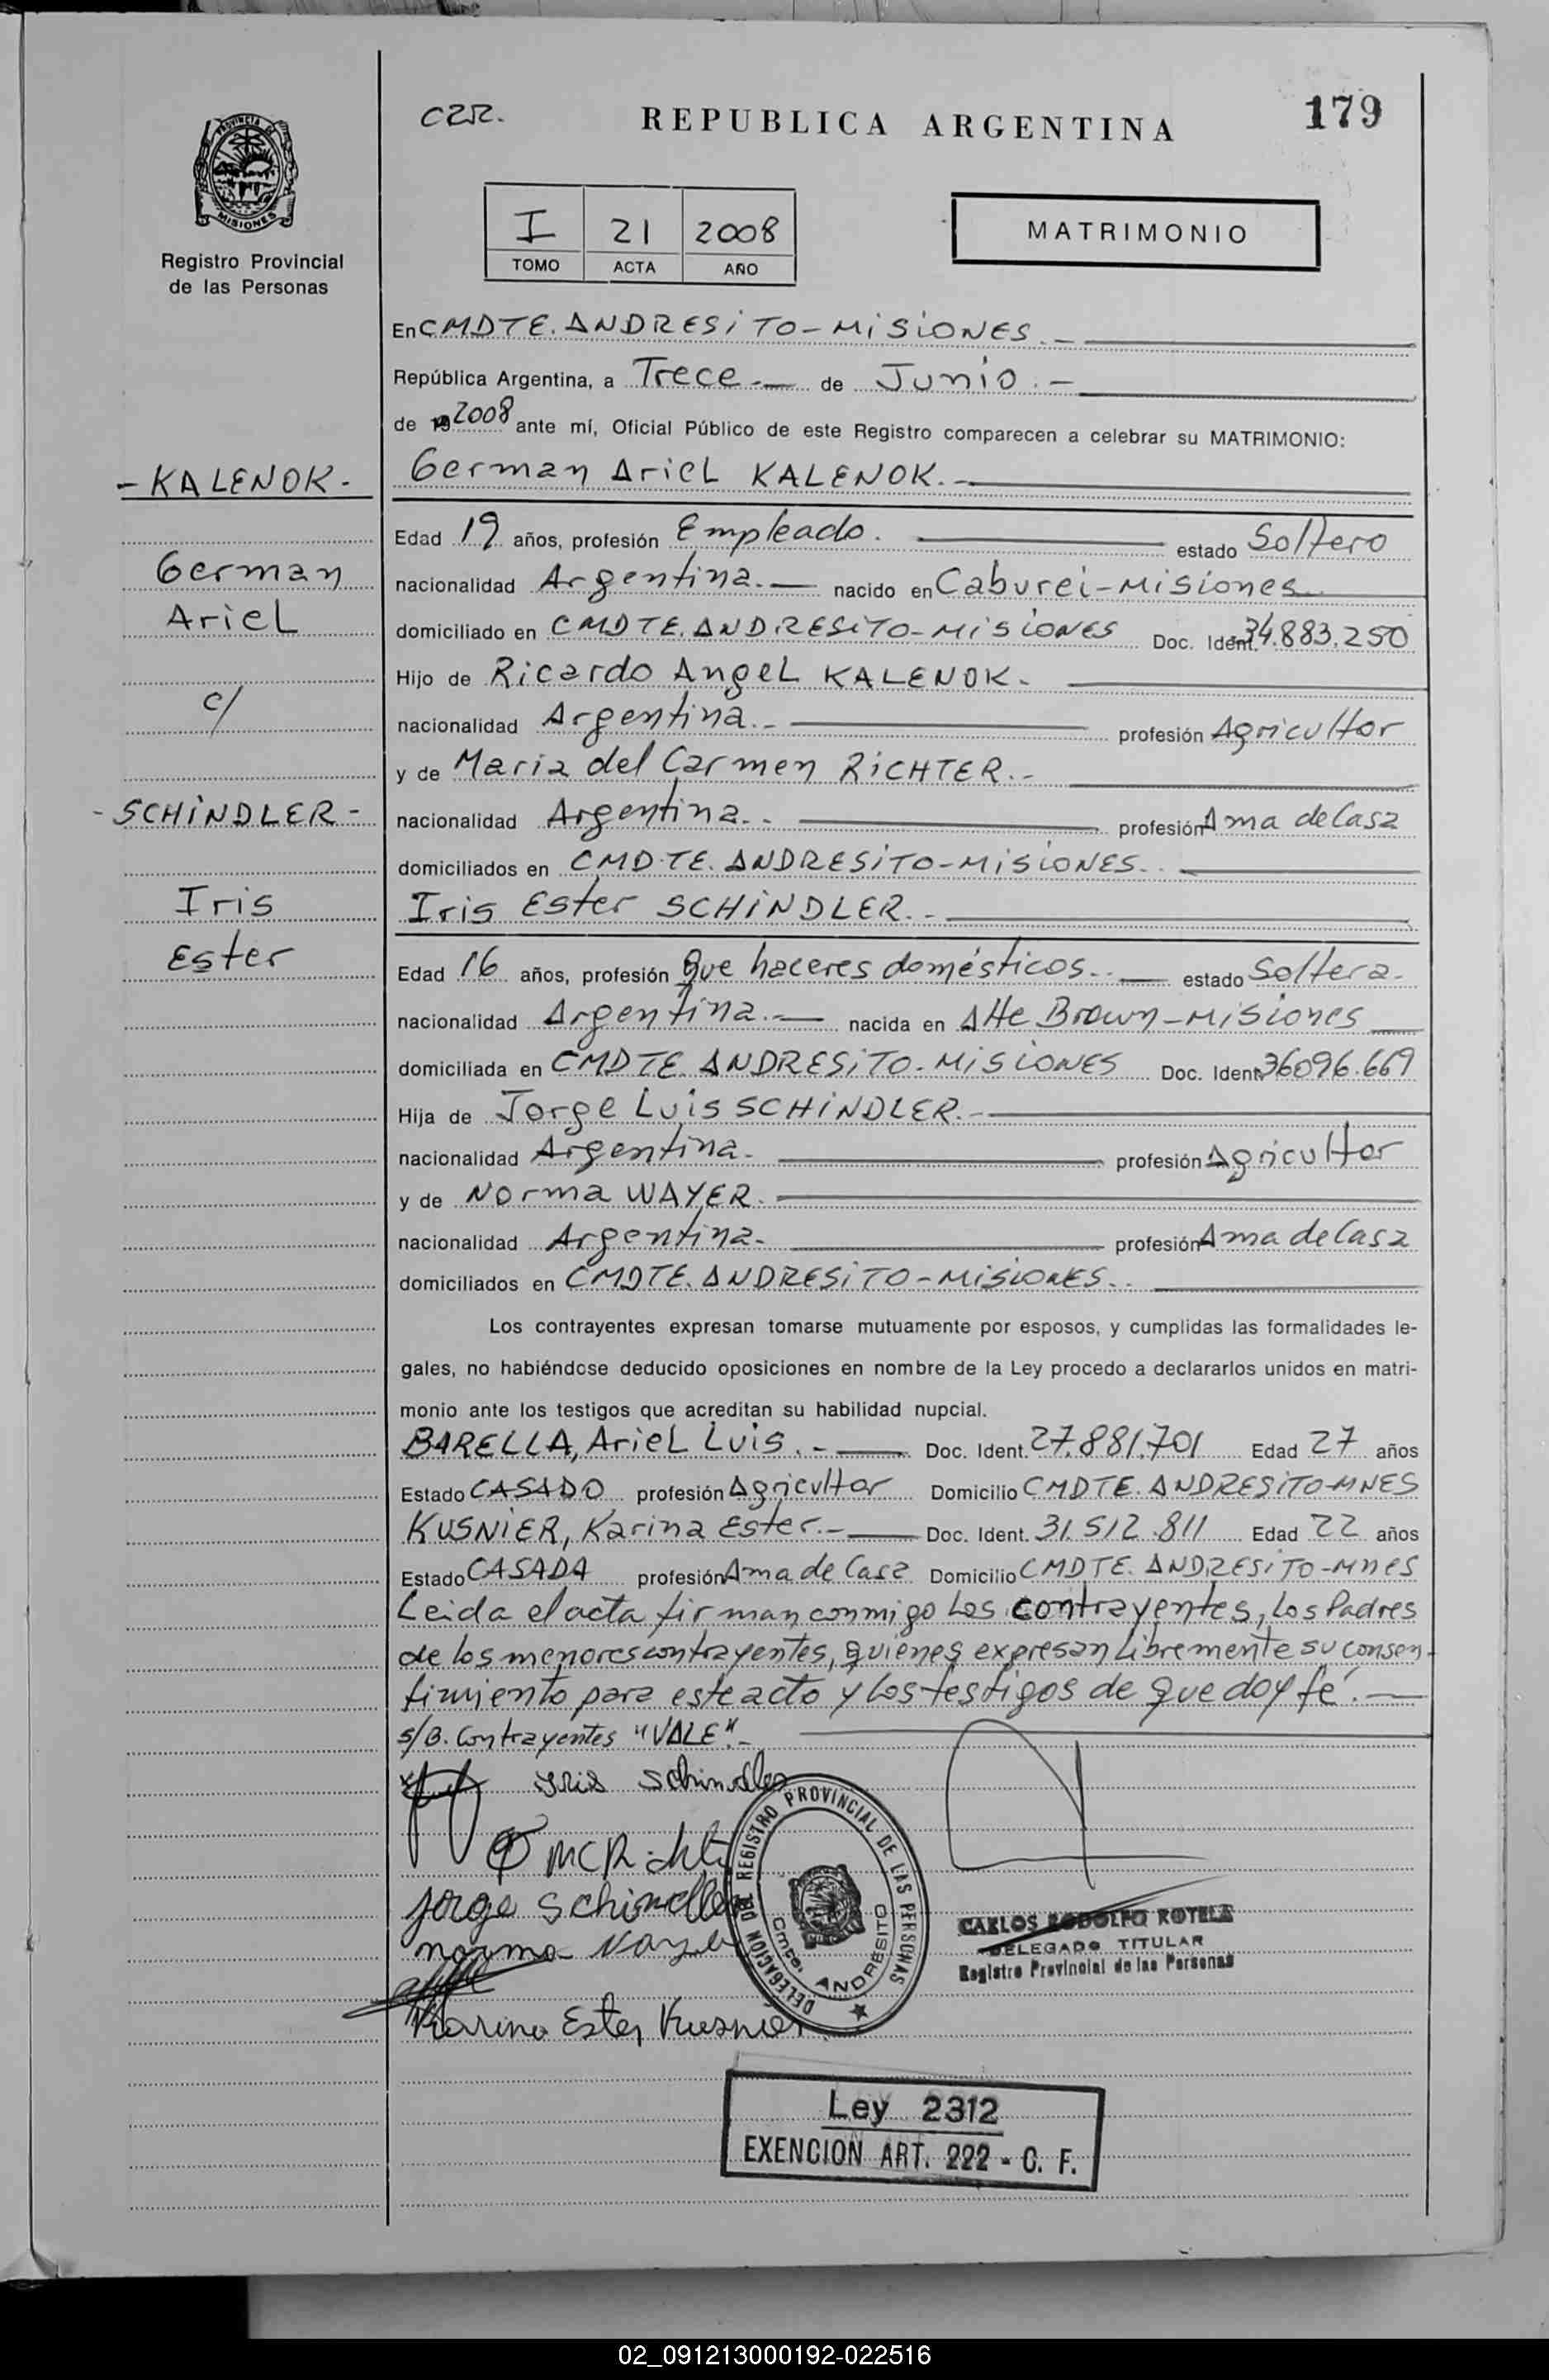 CZR.
REPUBLICA ARGENTINA
179
PROVINCIA DE
MISIONES
Registro Provincial
de las Personas
I 21 2008
TOMO ACTA AÑO
MATRIMONIO
En CMDTE. ANDRESiTO - MiSiONES. -
República Argentina, a Trece. - de Junio. -
de 19 2008 ante mí, Oficial Público de este Registro comparecen a celebrar su MATRIMONIO:
- KALENOK -
German Ariel KALENOK. -
Edad 19 años, profesión Empleado. estado Soltero
German
nacionalidad Argentina. - nacido en Caburei - Misiones
Ariel
domiciliado en CMDTE. ANDRESiTO - MiSiONES Doc. Ident. 34.883.250
Hijo de Ricardo Angel KALENOK -
c/
nacionalidad Argentina. - profesión Agricultor
y de Maria del Carmen RiCHTER. -
- SCHiNDLER -
nacionalidad Argentina. - profesión Ama de Casa
domiciliados en CMDTE. ANDRESiTO - MiSiONES. -
Iris
Iris Ester SCHiNDLER. -
Ester
Edad 16 años, profesión Que haceres domésticos. - estado Soltera -
nacionalidad Argentina. - nacida en Alte Brown - Misiones
domiciliada en CMDTE. ANDRESiTO - MiSiONES Doc. Ident. 36096.669
Hija de Jorge Luis SCHiNDLER. -
nacionalidad Argentina - profesión Agricultor
y de Norma WAYER.
nacionalidad Argentina - profesión Ama de Casa
domiciliados en CMDTE. ANDRESiTO - MiSiONES. -
Los contrayentes expresan tomarse mutuamente por esposos, y cumplidas las formalidades le-
gales, no habiéndose deducido oposiciones en nombre de la Ley procedo a declararlos unidos en matri-
monio ante los testigos que acreditan su habilidad nupcial.
BARELLA, Ariel Luis. - Doc. Ident. 27.881.701 Edad 27 años
Estado CASADO profesión Agricultor Domicilio CMDTE. ANDRESiTO-MNES
KUSNiER, Karina Ester. - Doc. Ident. 31.512.811 Edad 22 años
Estado CASADA profesión Ama de Casa Domicilio CMDTE. ANDRESiTO-Mnes
Leida el acta firman conmigo los contrayentes, los Padres
de los menores contrayentes, quienes expresan Libremente su consen-
timiento para este acto y los testigos de que doy fé. -
s/B. Contrayentes "VALE". -
Iris Schindler
MCRichter
Jorge Schindler
norma
Karina Ester Kusnier
DELEGACION DEL REGISTRO PROVINCIAL DE LAS PERSONAS
Cmte. ANDRESITO
CARLOS RODOLFO ROTELA
DELEGADO TITULAR
Registro Provincial de las Personas
Ley 2312
EXENCION ART. 222 - C. F.
02_091213000192-022516